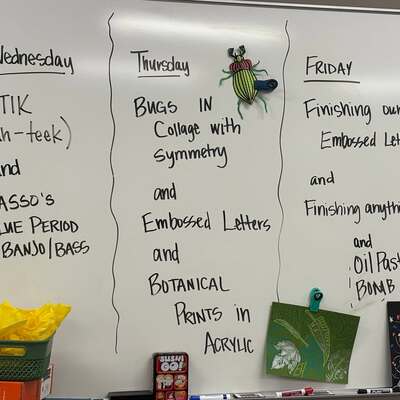 Wednesday
TIK
and
BLUE PERIOD
BANJO/BASS
Thursday
BUGS IN
Collage with
Symmetry
and
Embossed Letters
and
BOTANICAL
PRINTS in
ACRYLIC
FRIDAY
Finishing our
Embossed
and
Finishing
and
Oil
BOMB
SUSHI
GO!